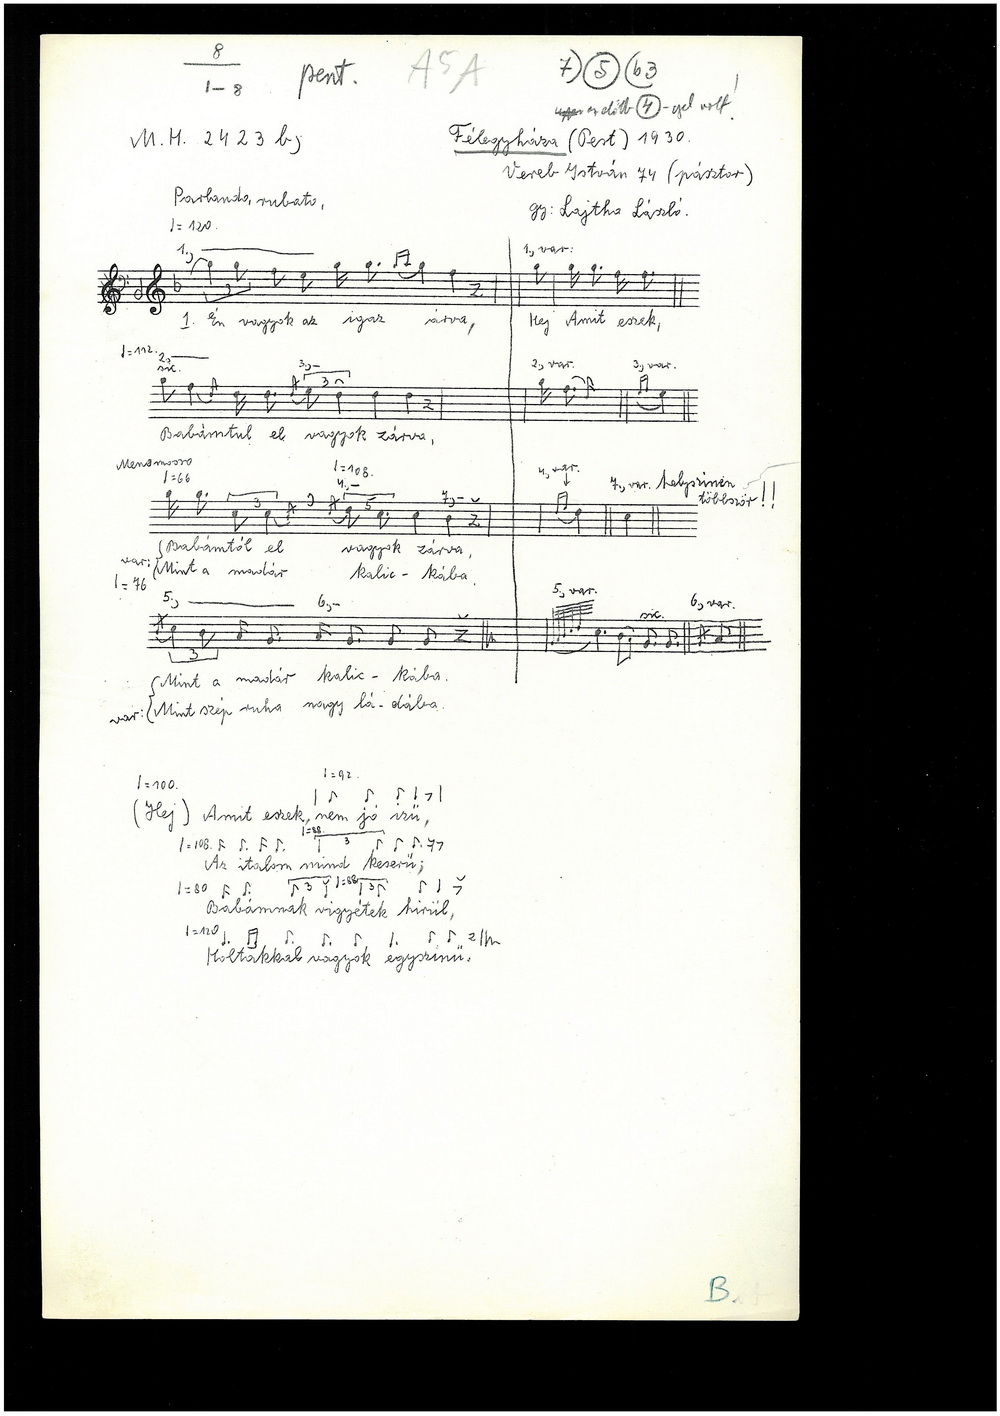 8
1-8
pent.
A5A
7) 5 (b3
előbb 4-gyel volt!
M.H. 2423 b)
Félegyháza (Pest) 1930.
Vereb István 74 (pásztor)
gy: Lajtha László.
Parlando, rubato,
= 120.
1.,
1., var:
1. Én vagyok az igaz árva,
Hej Amit eszek,
= 112.
2.,
sic.
3.,-
3
2., var.
3., var.
Babámtul el vagyok zárva,
Meno mosso
= 66
= 108.
4.,-
3
5
7.,-
4., var.
7., var. helyszínen többször!!
Babámtól el vagyok zárva,
var: Mint a madár kalic-kába.
= 76
5.,
6.,-
3
5., var.
sic.
6., var.
Mint a madár kalic-kába.
var: Mint szép ruha nagy lá-dába.
= 100.
= 92.
(Hej) Amit eszek, nem jó izű,
= 108.
= 88.
3
Az italom mind keserű;
= 80
3
= 88
3
Babámnak vigyétek hirül,
= 120
Holtakkal vagyok egyszínű.
B.